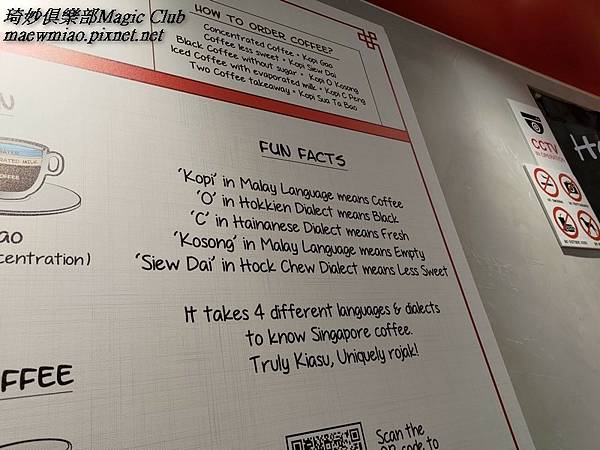 琦妙俱樂部Magic Club
maewmiao.pixnet.net
HOW TO ORDER COFFEE?
Concentrated Coffee • Kopi Gao
Coffee less sweet • Kopi Siew Dai
Black Coffee without sugar • Kopi O Kosong
Iced Coffee with evaporated milk • Kopi C Peng
Two Coffee takeaway • Kopi Sua Ta Bao
FUN FACTS
'Kopi' in Malay Language means Coffee
'O' in Hokkien Dialect means Black
'C' in Hainanese Dialect means Fresh
'Kosong' in Malay Language means Empty
'Siew Dai' in Hock Chew Dialect means Less Sweet
It takes 4 different languages & dialects
to know Singapore coffee.
Truly Kiasu, Uniquely rojak!
Scan the
QR code to
N
WATER
RATED MILK
COFFEE
ao
centration)
FFEE
CCTV
IN OPERATION
NO SMOKING